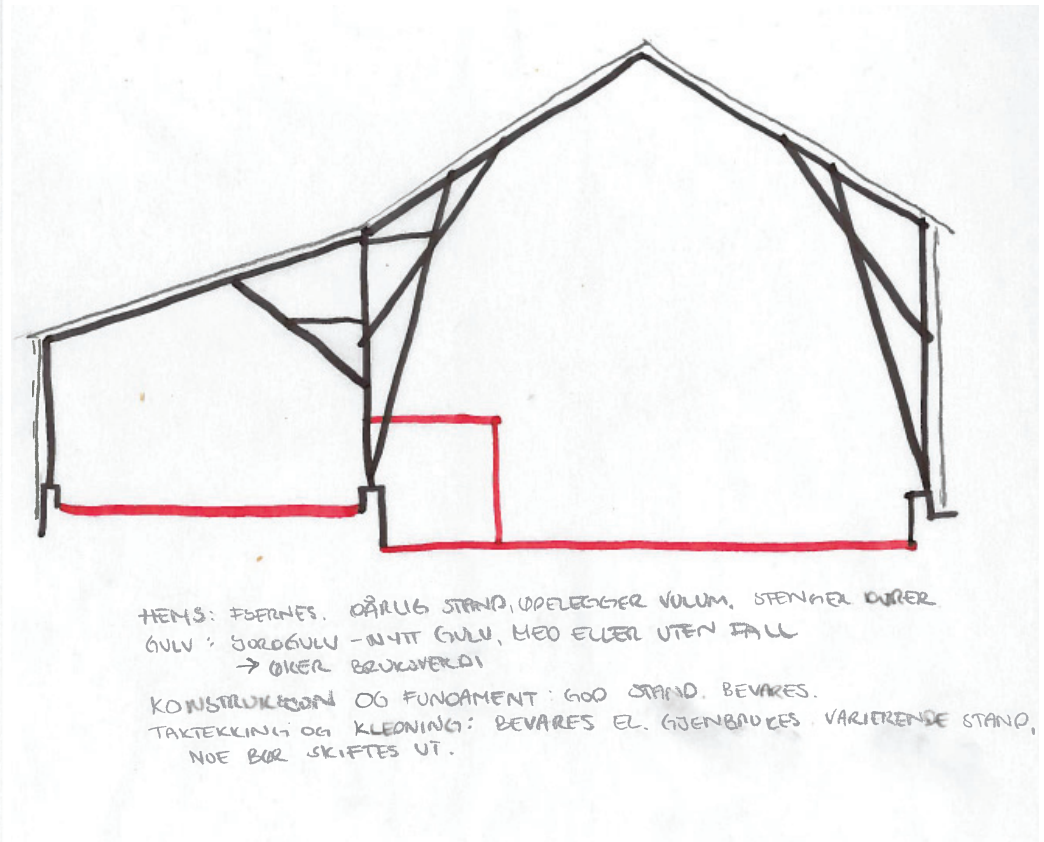 HEMS: FJERNES. DÅRLIG STAND, ØDELEGGER VOLUM. STENGER DØRER
GULV: JORDGULV - NYTT GULV, MED ELLER UTEN FALL
→ ØKER BRUKSVERDI
KONSTRUKSJON OG FUNDAMENT: GOD STAND. BEVARES.
TAKTEKKING OG KLEDNING: BEVARES EL. GJENBRUKES. VARIERENDE STAND,
NOE BØR SKIFTES UT.